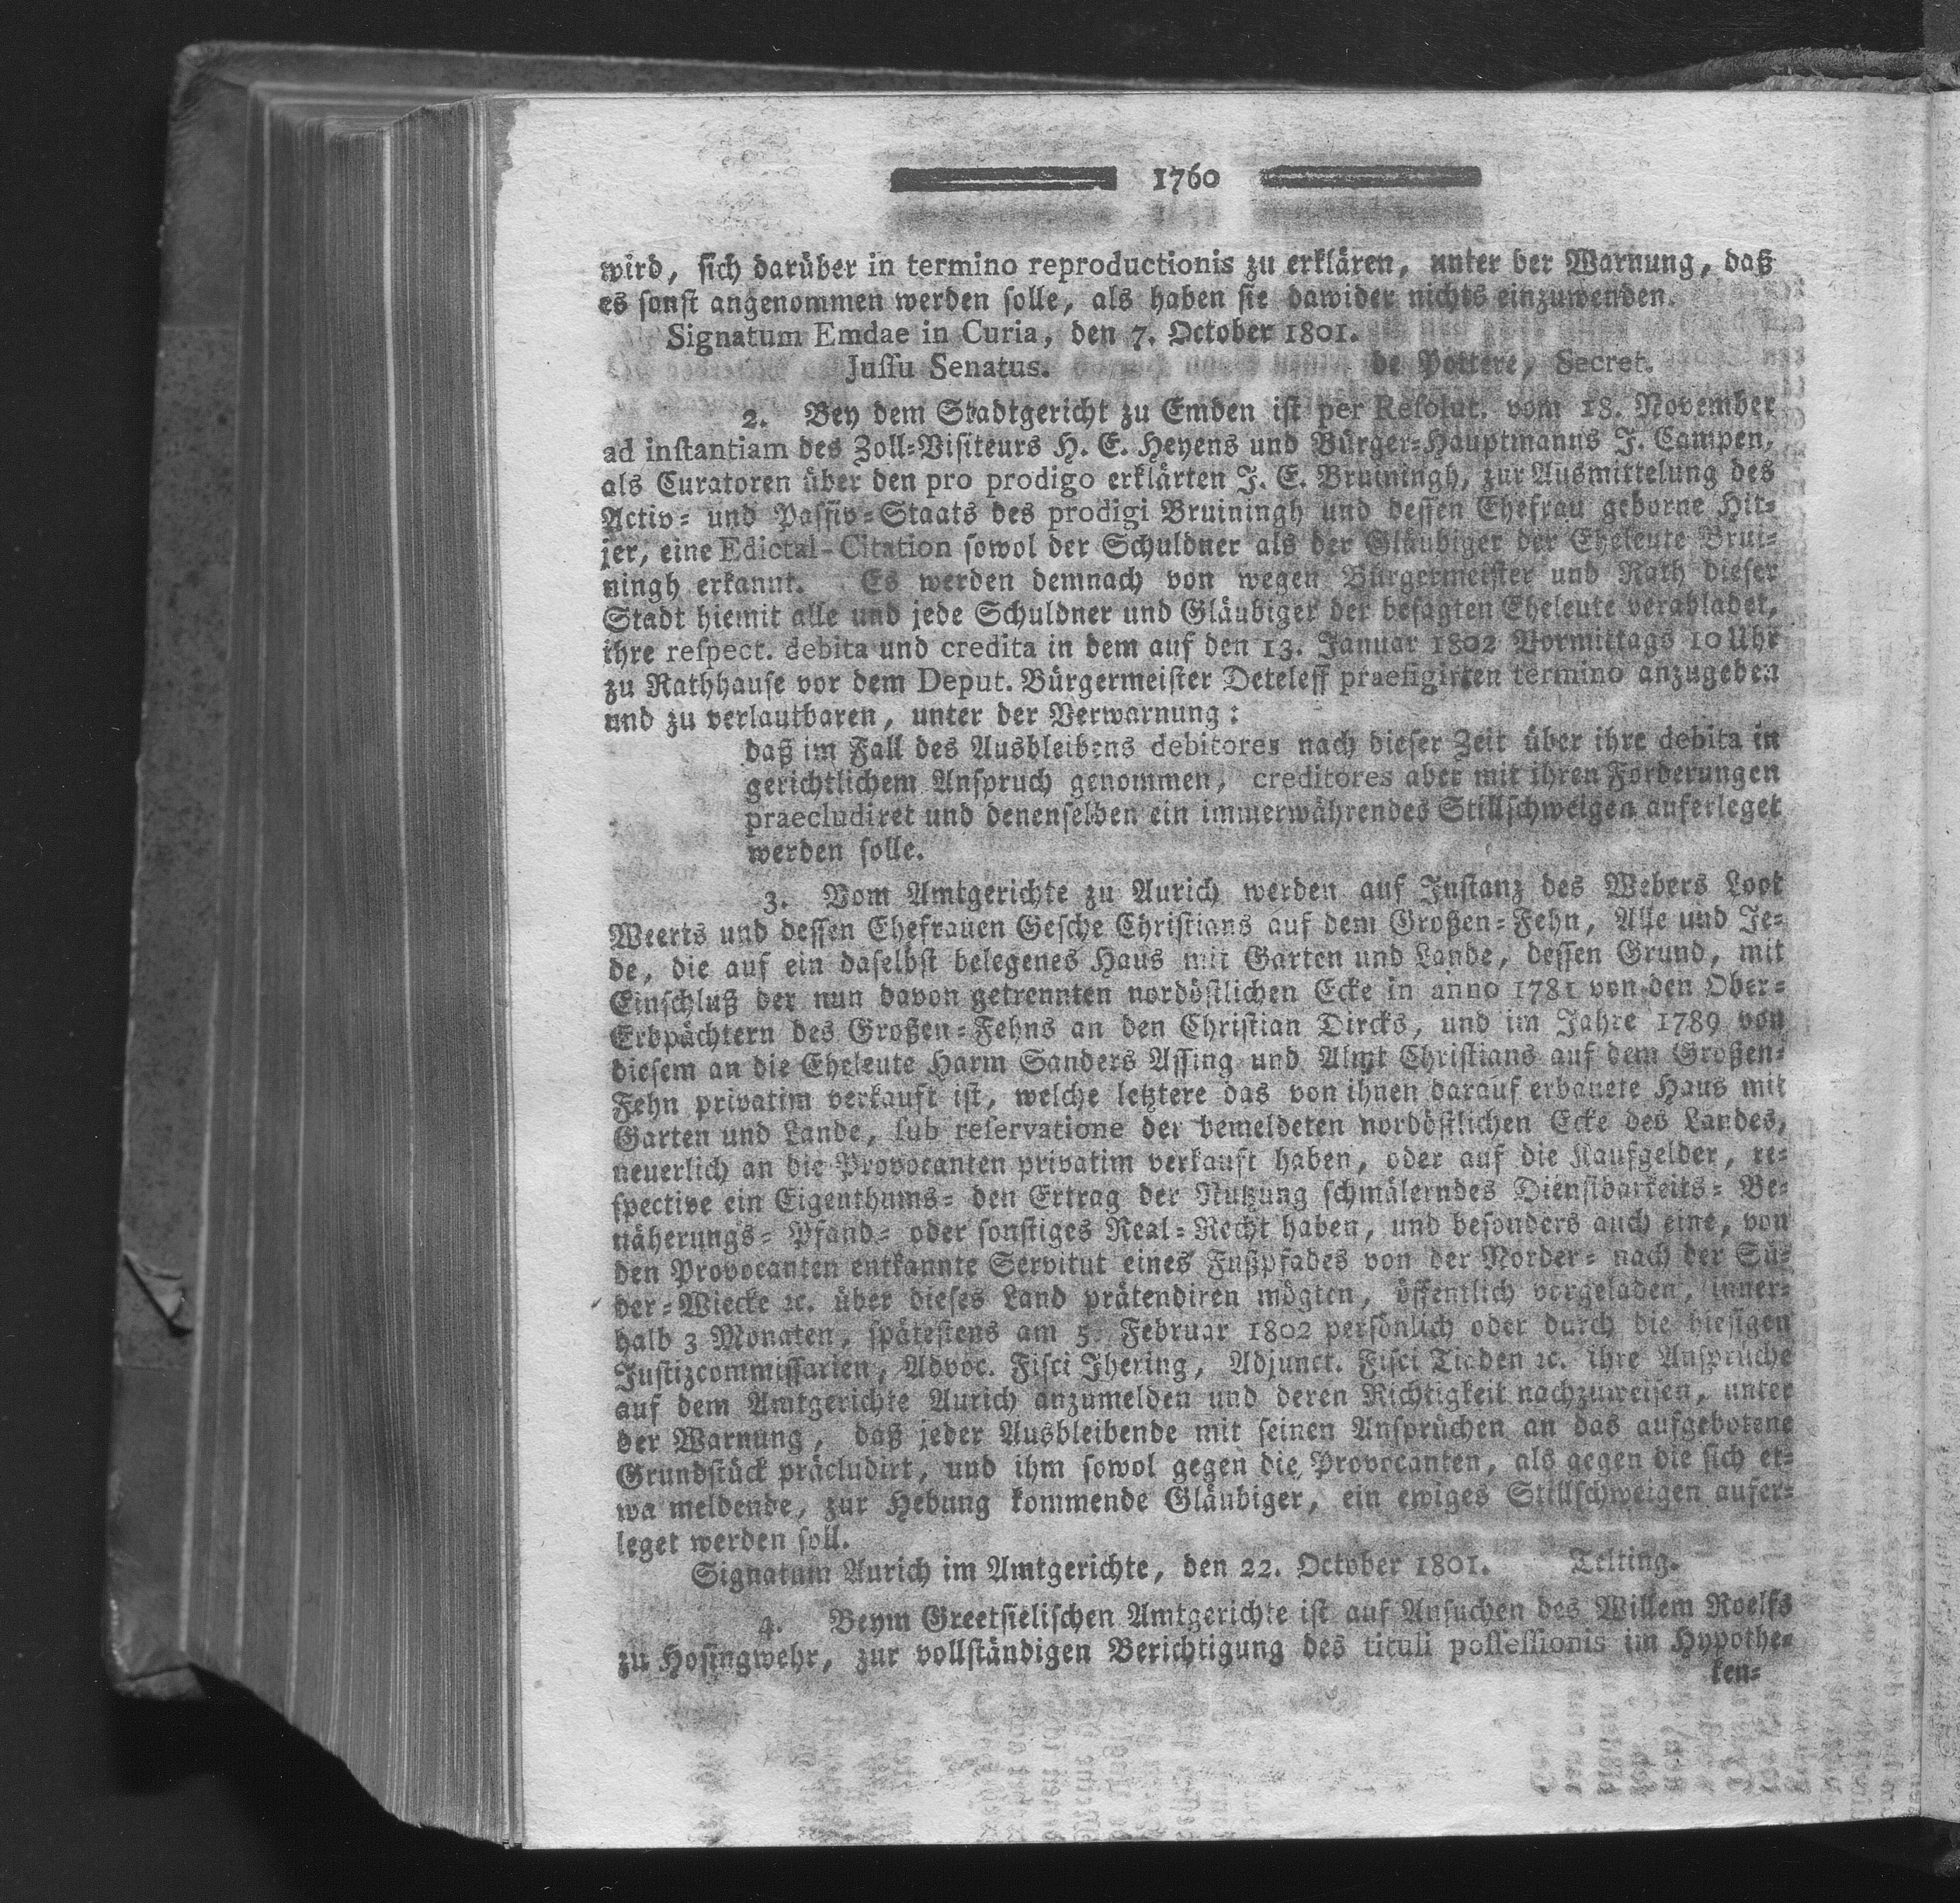 1760
wird, sich darüber in termino reproductionis zu erklären, unter der Warnung, daß
es sonst angenommen werden solle, als haben sie dawider nichts einzuwenden.
Signatum Emdae in Curia, den 7. October 1801.
Jussu Senatus. de Pottere, Secret.
2. Bey dem Stadtgericht zu Emden ist per Resolut. vom 18. November
ad instantiam des Zoll-Visiteurs H. E. Heyens und Bürger-Hauptmanns J. Campen,
als Curatoren über den pro prodigo erklärten J. E. Bruiningh, zur Ausmittelung des
Activ- und Passiv-Staats des prodigi Bruiningh und dessen Ehefrau geborne Hit-
jer, eine Edictal-Citation sowol der Schuldner als der Gläubiger der Eheleute Brui-
ningh erkannt. Es werden demnach von wegen Bürgermeister und Rath dieser
Stadt hiemit alle und jede Schuldner und Gläubiger der besagten Eheleute verabladet,
ihre respect. debita und credita in dem auf den 13. Januar 1802 Vormittags 10 Uhr
zu Rathhause vor dem Deput. Bürgermeister Deteleff praefigirten termino anzugeben
und zu verlautbaren, unter der Verwarnung:
daß im Fall des Ausbleibens debitores nach dieser Zeit über ihre debita in
gerichtlichem Anspruch genommen, creditores aber mit ihren Forderungen
praecludiret und denenselben ein immerwährendes Stillschweigen auferleget
werden solle.
3. Vom Amtgerichte zu Aurich werden auf Instanz des Webers Loot
Weerts und dessen Ehefrauen Gesche Christians auf dem Großen-Fehn, Alle und Je-
de, die auf ein daselbst belegenes Haus mit Garten und Lande, dessen Grund, mit
Einschluß der nun davon getrennten nordöstlichen Ecke in anno 1781 von den Ober-
Erbpächtern des Großen-Fehns an den Christian Dircks, und im Jahre 1789 von
diesem an die Eheleute Harm Sanders Assing und Almt Christians auf dem Großen-
Fehn privatim verkauft ist, welche letztere das von ihnen darauf erbauete Haus mit
Garten und Lande, sub reservatione der bemeldeten nordöstlichen Ecke des Landes,
neuerlich an die Provocanten privatim verkauft haben, oder auf die Kaufgelder, re-
spective ein Eigenthums- den Ertrag der Nutzung schmälerndes Dienstbarkeits- Be-
näherungs- Pfand- oder sonstiges Real-Recht haben, und besonders auch eine, von
den Provocanten entkannte Servitut eines Fußpfades von der Norder- nach der Sü-
der-Wiecke ꝛc. über dieses Land prätendiren mögten, öffentlich vorgeladen, inner-
halb 3 Monaten, spätestens am 5. Februar 1802 persönlich oder durch die hiesigen
Justizcommissarien, Advoc. Fisci Ihering, Adjunct. Fisci Tiaden ꝛc. ihre Ansprüche
auf dem Amtgerichte Aurich anzumelden und deren Richtigkeit nachzuweisen, unter
der Warnung, daß jeder Ausbleibende mit seinen Ansprüchen an das aufgebotene
Grundstück präcludirt, und ihm sowol gegen die Provocanten, als gegen die sich et-
wa meldende, zur Hebung kommende Gläubiger, ein ewiges Stillschweigen aufer-
leget werden soll.
Signatum Aurich im Amtgerichte, den 22. October 1801. Telting.
4. Beym Greetsielischen Amtgerichte ist auf Ansuchen des Willem Roelfs
zu Hosingwehr, zur vollständigen Berichtigung des tituli possessionis im Hypothe-
ken-